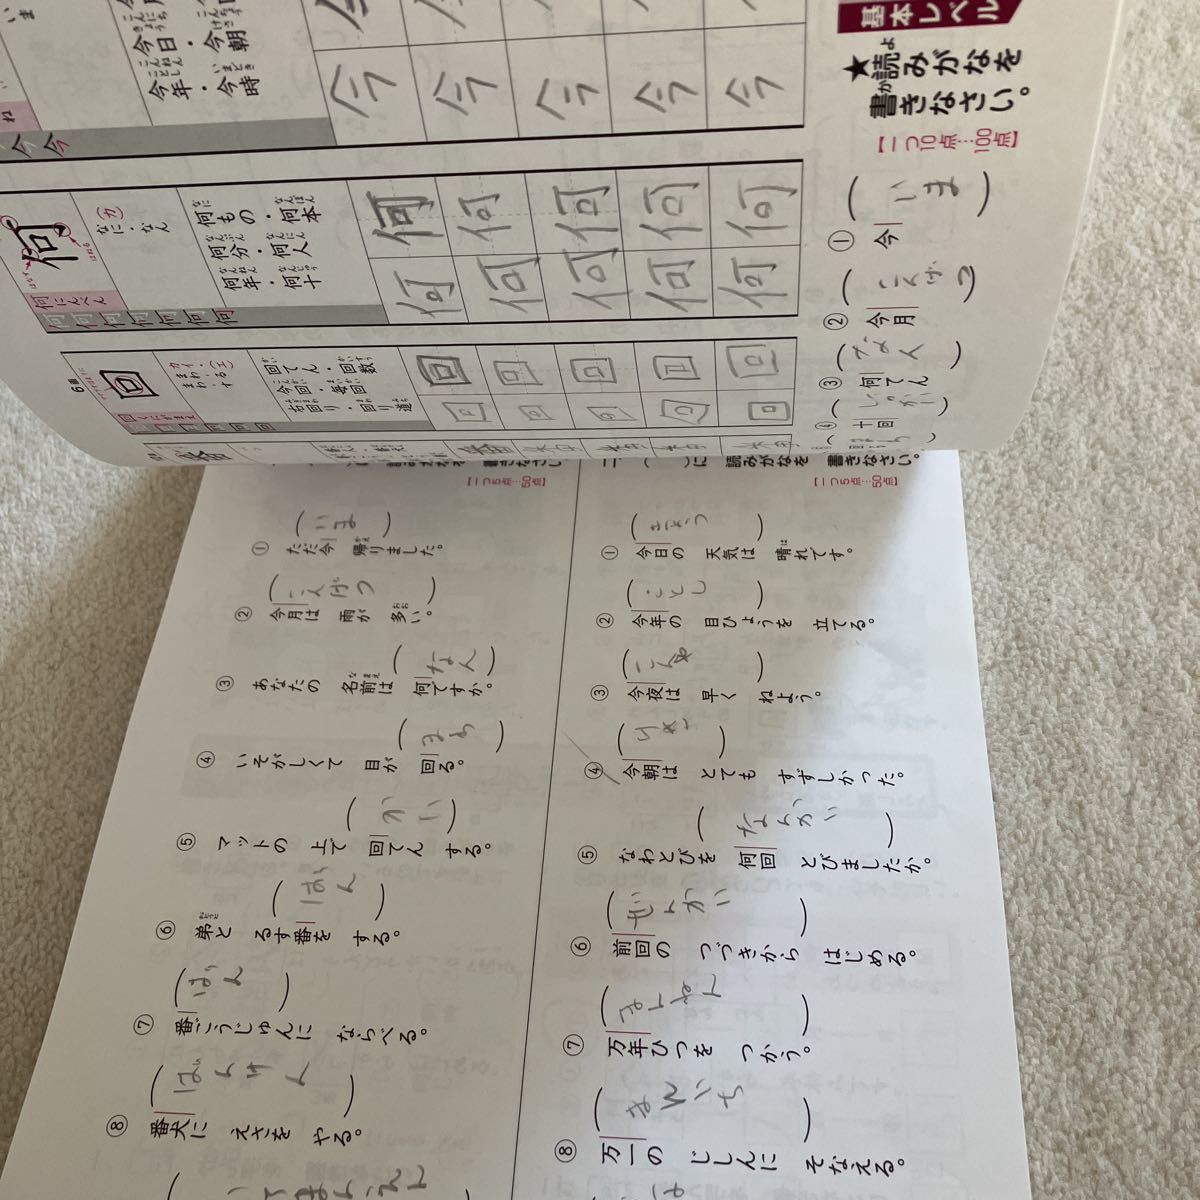 基本レベル
★読みがなを
書きなさい。
【一つ10点…100点】
① 今
いま
② 今月
こんげつ
③ 何てん
なん
④ 十回
今日・今朝
今年・今時
何
なに・なん
何もの・何本
何分・何人
何年・何十
にんべん
回
回てん・回数
今回・毎回
右回り・回り道
読みがなを 書きなさい。
【一つ5点…50点】
① 今日の 天気は 晴れです。
② 今年の 目ひょうを 立てる。
ことし
③ 今夜は 早く ねよう。
こんや
④ 今朝は とても すずしかった。
⑤ なわとびを 何回 とびましたか。
なんかい
⑥ 前回の つづきから はじめる。
ぜんかい
⑦ 万年ひつを つかう。
まんねん
⑧ 万一の じしんに そなえる。
まんいち
【一つ5点…50点】
① ただ今 帰りました。
いま
② 今月は 雨が 多い。
こんげつ
③ あなたの 名前は 何ですか。
なん
④ いそがしくて 目が 回る。
まわ
⑤ マットの 上で 回てん する。
かい
⑥ 弟と るす番を する。
ばん
⑦ 番ごうじゅんに ならべる。
ばん
⑧ 番犬に えさを やる。
ばんけん